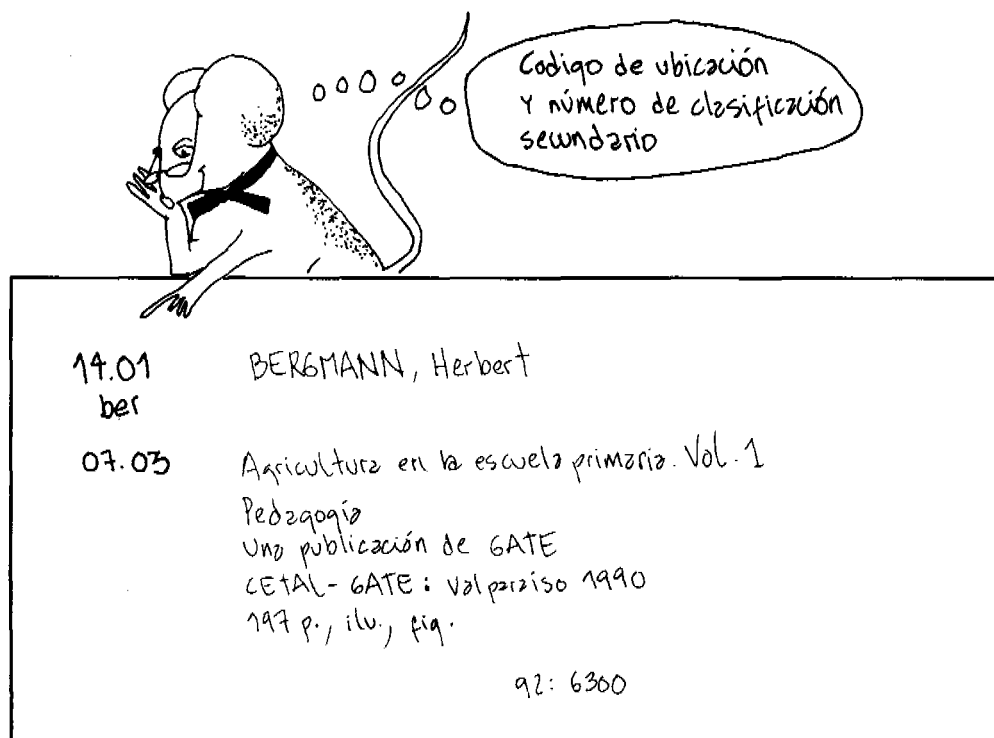 Codigo de ubicación
y número de clasificación
secundario
14.01 BERGMANN, Herbert
ber
07.03 Agricultura en la escuela primaria. Vol. 1
Pedagogía
Una publicación de GATE
CETAL- GATE: Valparaiso 1990
197 p., ilu., fig.
92: 6300